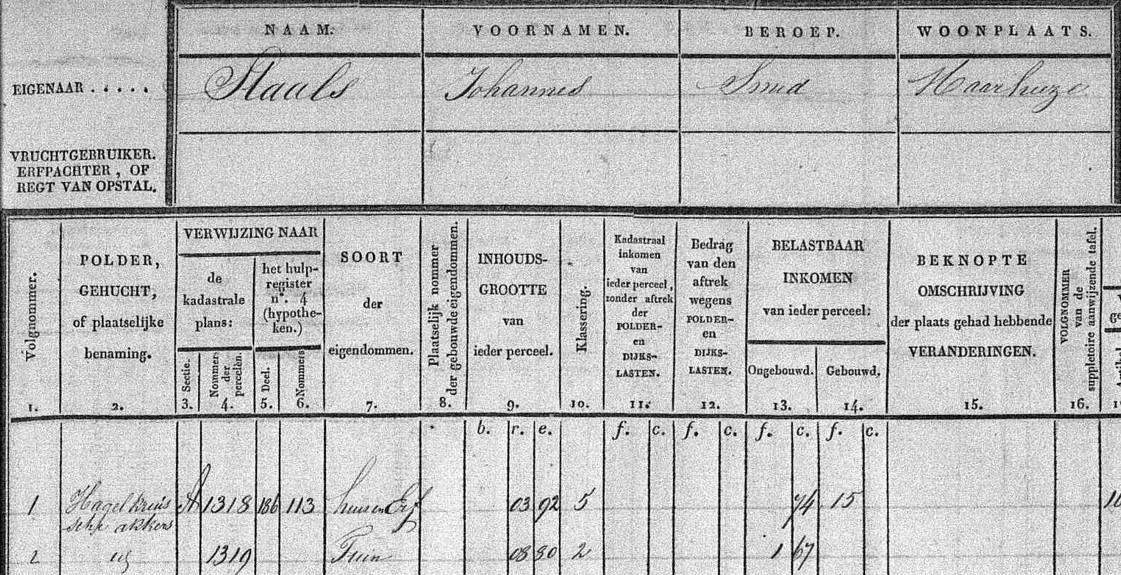 NAAM. VOORNAMEN. BEROEP. WOONPLAATS.
EIGENAAR ..... Staals Johannes Smid Maarheeze
VRUCHTGEBRUIKER.
ERFPACHTER, OF
REGT VAN OPSTAL.
Volgnommer.
1.
POLDER,
GEHUCHT,
of plaatselijke
benaming.
2.
VERWIJZING NAAR
de
kadastrale
plans:
Sectie.
3.
Nommers
der
percelen.
4.
het hulp-
register
n°. 4
(hypothe-
ken.)
Deel.
5.
Nommers
6.
SOORT
der
eigendommen.
7.
Plaatselijk nommer
der gebouwde eigendommen.
8.
INHOUDS-
GROOTTE
van
ieder perceel.
9.
Klassering.
10.
Kadastraal
inkomen
van
ieder perceel,
zonder aftrek
der
POLDER-
en
DIJKS-
LASTEN.
11.
Bedrag
van den
aftrek
wegens
POLDER-
en
DIJKS-
LASTEN.
12.
BELASTBAAR
INKOMEN
van ieder perceel:
Ongebouwd.
13.
Gebouwd.
14.
BEKNOPTE
OMSCHRIJVING
der plaats gehad hebbende
VERANDERINGEN.
15.
VOLGNOMMER
van de
suppletoire aanwijzende tafel.
16.
b. r. e. f. c. f. c. f. c. f. c.
1 Hagelkruis A 1318 186 113 huis en Erf 03 92 5 74 15
akkers
2 1319 Tuin 08 80 2 1 67